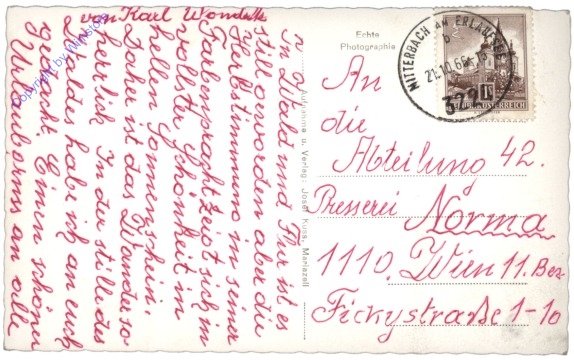 von Karl Wondrak
In Wald und Flur ist es
still geworden aber die
Herbstimmung in seiner
Farbenpracht zeigt sich im
vollster Schönheit in
hellen Sonnenschein.
Daher ist das Wandern so
herrlich. In der stille des
Waldes habe ich an euch
gedacht. Einen schönen
Urlaubsgruß an alle
Echte
Photographie
Aufnahme u. Verlag: Josef Kuss, Mariazell
MITTERBACH AM ERLAUFSEE
b
21.10.66
3224
REPUBLIK ÖSTERREICH
An
die
Abteilung 42.
Presserei Norma
1110. Wien 11. Bez
Fickystraße 1-10